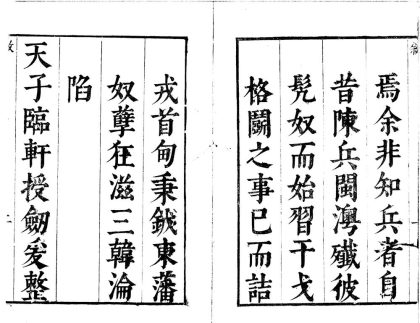 焉余非知兵者自
昔陳兵閩灣殲彼
髡奴而始習干戈
格鬭之事已而詰
戎首甸秉鉞東藩
奴孽狂滋三韓淪
陷
天子臨軒授劒爰整